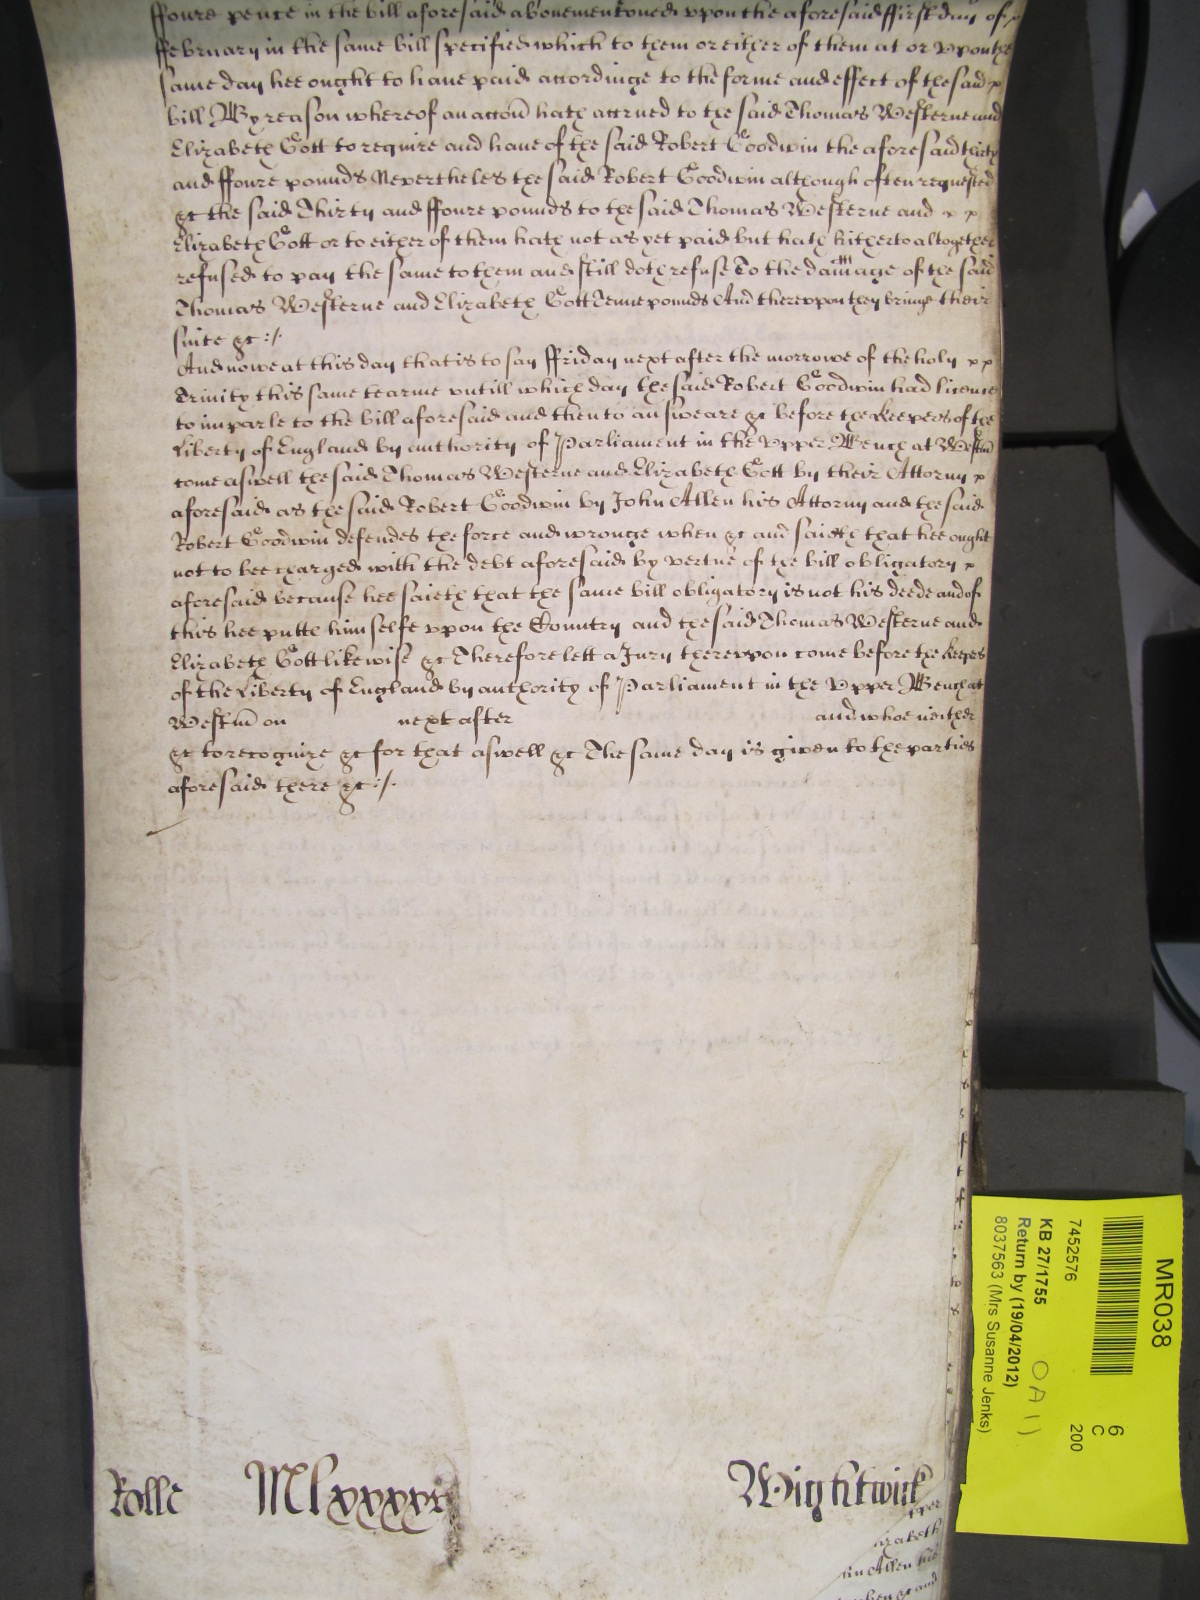 ffoure pence in the bill aforesaid abovementoned vpon the aforesaid ffirst day of x
ffebruary in the same bill specified which to them or either of them at or vpon the
same day hee ought to have paid accordinge to the forme and effect of the said x
bill By reason whereof an accōn hath accrued to the said Thomas Westerne and
Elizabeth Gott to require and have of the said Robert Goodwin the aforesaid thirty
and ffoure pounds Nevertheles the said Robert Goodwin although often requested
&c the said Thirty and ffoure pounds to the said Thomas Westerne and x x
Elizabeth Gott or to either of them hath not as yet paid but hath hitherto altogether
refused to pay the same to them and still doth refuse To the damage of the said
Thomas Westerne and Elizabeth Gott Tenne pounds And therevpon they bringe their
suite &c :/.
And nowe at this day that is to say ffriday next after the morrowe of the holy x x
Trinity this same tearme vntill which day the said Robert Goodwin had licence
to imparle to the bill aforesaid and then to answeare &c before the keepers of the
Liberty of England by authority of Parliament in the Vpper Bench at Westm̄
come aswell the said Thomas Westerne and Elizabeth Gott by their Attorny x
aforesaid as the said Robert Goodwin by John Allen his Attorny and the said
Robert Goodwin defendes the force and wronge when &c and saieth that hee ought
not to bee charged with the debt aforesaid by vertue of the bill obligatory x
aforesaid because hee saieth that the same bill obligatory is not his deede and of
this hee putth himselfe vpon the Country and the said Thomas Westerne and
Elizabeth Gott likewise &c Therefore lett a Jury therevpon come before the keepers
of the Liberty of England by authority of Parliament in the Vpper Bench at
Westm̄ on next after and whoe neither
&c to recognize &c for that aswell &c The same day is given to the parties
aforesaid there &c :/.
Rolle Mlxxxx Wightwick
izabeth
hn Allen his
when &c and
MR038
6
C
200
7452576
KB 27/1755 OA 1)
Return by (19/04/2012)
8037563 (Mrs Susanne Jenks)